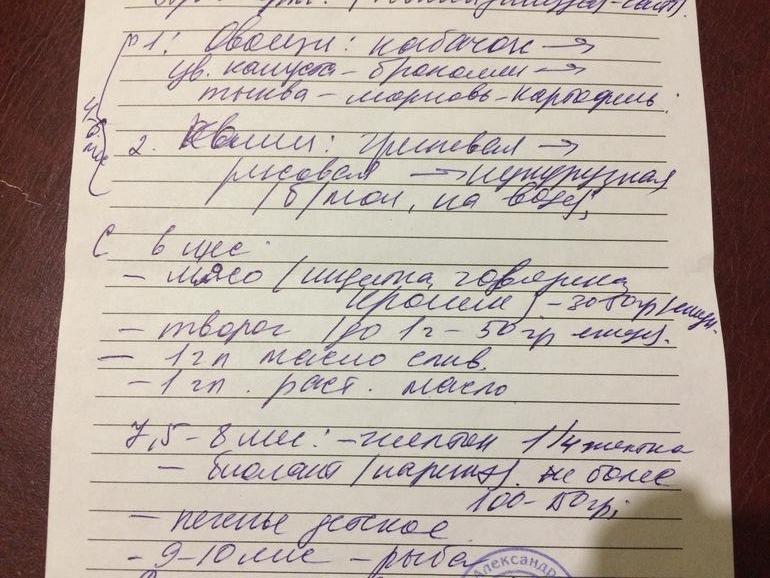 №1: Овощи: кабачок →
цв. капуста – брокколи →
тыква – морковь – картофель.
4-6 мес
2. Каши: гречневая →
рисовая → кукурузная
/б/мол, на воде/;
С 6 мес:
– мясо /индейка, говядина
кролик/ – 30-50гр/ежедн.
– творог /до 1г – 50гр ежедн.
– 1 гп масло слив.
– 1 гп. раст. масло
7,5-8 мес: – желток 1/4 желтка
– биолакт / не более
100-150гр;
– печенье детское
– 9-10 мес – рыба
Александр